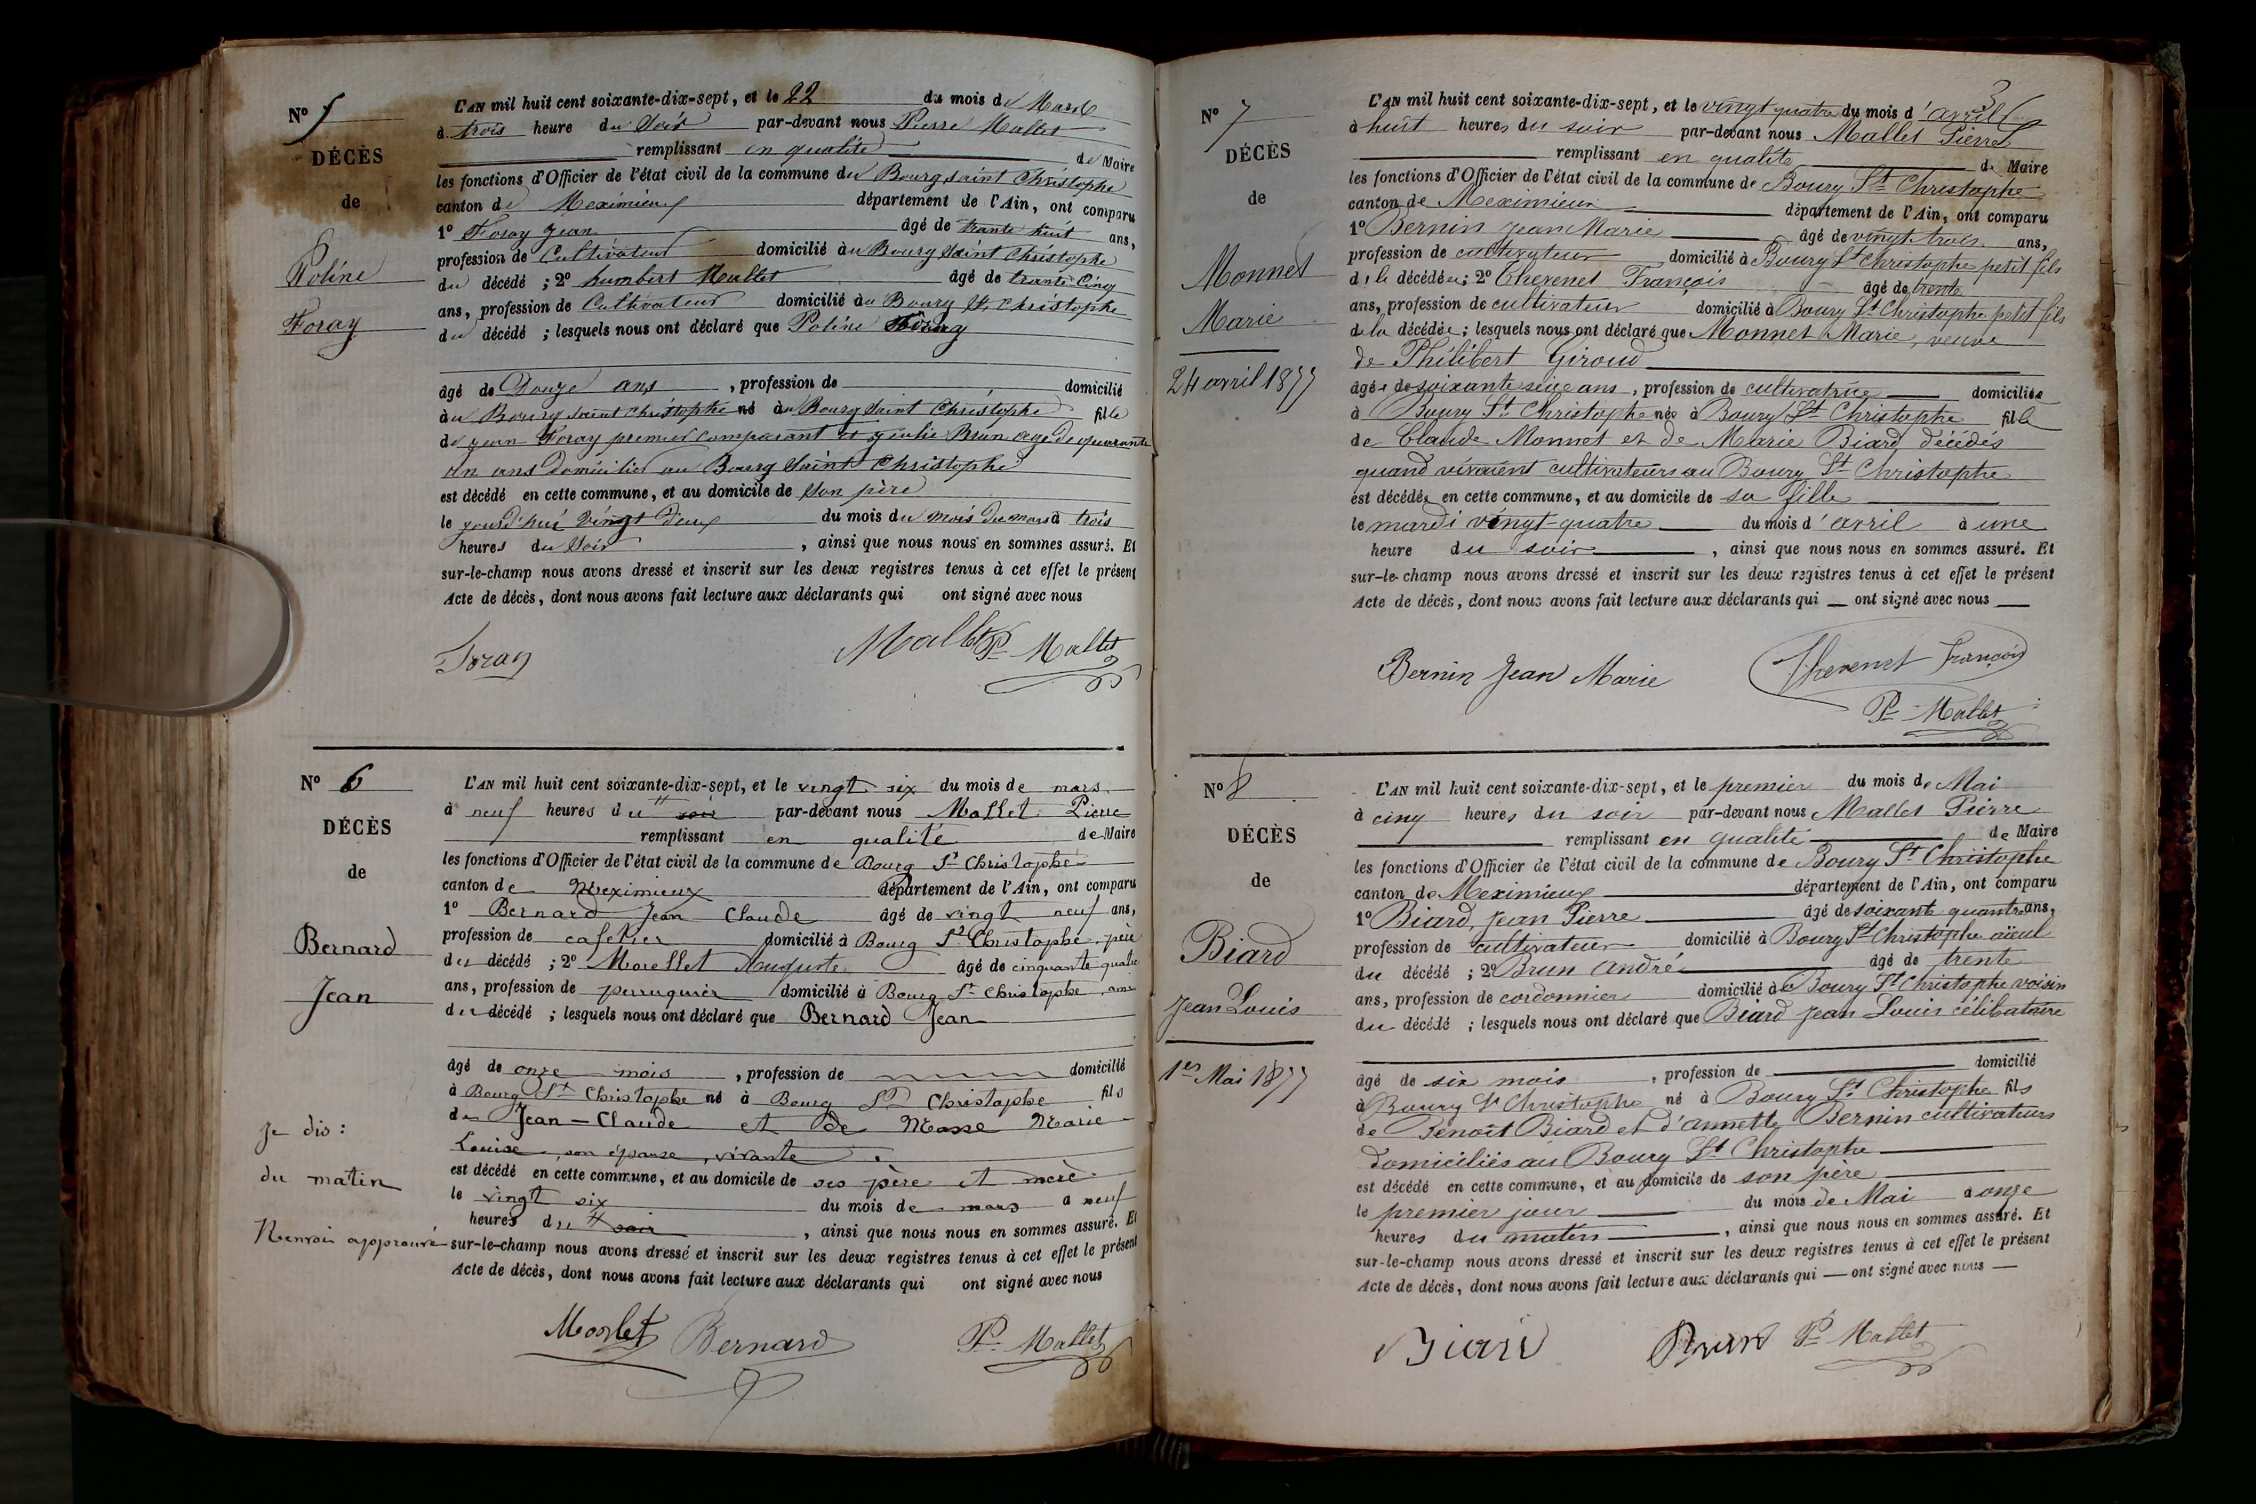 Nº 5
DÉCÈS
de
Poline
Foray
L'AN mil huit cent soixante-dix-sept, et le 22 du mois de Mars
à trois heure du Soir par-devant nous Pierre Mallet
remplissant en qualité de Maire
les fonctions d'Officier de l'état civil de la commune de Bourg saint Christophe
canton de Meximieux département de l'Ain, ont comparu
1º Foray Jean âgé de trante huit ans,
profession de Cultivateur domicilié à au Bourg Saint Christophe
du décédé ; 2º humbert Mallet âgé de trante Cinq
ans, profession de Cultivateur domicilié à au Bourg St Christophe
du décédé ; lesquels nous ont déclaré que Poline Foray
âgé de Douze ans , profession de domicilié
à au Bourg saint christophe né à au Bourg Saint Christophe fille
de jean Foray premier comparant et julie Brun agé de quarante
un ans domicilier au Bourg Saint Christophe
est décédé en cette commune, et au domicile de Son père
le jourd'hui Vingt deux du mois du mois du mars à trois
heures du Soir , ainsi que nous nous en sommes assuré. Et
sur-le-champ nous avons dressé et inscrit sur les deux registres tenus à cet effet le présent
Acte de décès, dont nous avons fait lecture aux déclarants qui ont signé avec nous
Foray Mallet Pre Mallet
Nº 6
DÉCÈS
de
Bernard
Jean
Je dis :
du matin
Renvoi approuvé
L'AN mil huit cent soixante-dix-sept, et le vingt six du mois de mars
à neuf heures du # soir par-devant nous Mallet Pierre
remplissant en qualité de Maire
les fonctions d'Officier de l'état civil de la commune de Bourg St Christophe
canton de Meximieux département de l'Ain, ont comparu
1º Bernard Jean Claude âgé de vingt neuf ans,
profession de cafetier domicilié à Bourg St Christophe, père
du décédé ; 2º Morellet Auguste âgé de cinquante quatre
ans, profession de perruquier domicilié à Bourg St Christophe, ami
du décédé ; lesquels nous ont déclaré que Bernard Jean
âgé de onze mois , profession de domicilié
à Bourg St Christophe né à Bourg St Christophe fils
de Jean-Claude et de Masse Marie
Louise, son épouse, vivante.
est décédé en cette commune, et au domicile de ses père et mère
le vingt six du mois de mars à neuf
heures du # soir , ainsi que nous nous en sommes assuré. Et
sur-le-champ nous avons dressé et inscrit sur les deux registres tenus à cet effet le présent
Acte de décès, dont nous avons fait lecture aux déclarants qui ont signé avec nous
Bernard Pre Mallet
3
Nº 7
DÉCÈS
de
Monnet
Marie
24 avril 1877
L'AN mil huit cent soixante-dix-sept, et le vingt quatre du mois d'avril
à huit heures du soir par-devant nous Mallet Pierre
remplissant en qualité de Maire
les fonctions d'Officier de l'état civil de la commune de Bourg St Christophe
canton de Meximieux département de l'Ain, ont comparu
1º Bernin Jean Marie âgé de vingt trois ans,
profession de cultivateur domicilié à Bourg St Christophe petit fils
de la décédée ; 2º Thevenet François âgé de trente
ans, profession de cultivateur domicilié à Bourg St Christophe petit fils
de la décédée ; lesquels nous ont déclaré que Monnet Marie, veuve
de Philibert Giroud
âgée de soixante seize ans , profession de cultivatrice domiciliée
à Bourg St Christophe née à Bourg St Christophe fille
de Claude Monnet et de Marie Biard décédés
quand vivaient cultivateurs au Bourg St Christophe
est décédée en cette commune, et au domicile de sa fille
le mardi vingt-quatre du mois d'avril à une
heure du soir , ainsi que nous nous en sommes assuré. Et
sur-le-champ nous avons dressé et inscrit sur les deux registres tenus à cet effet le présent
Acte de décès, dont nous avons fait lecture aux déclarants qui ont signé avec nous
Bernin Jean Marie Thevenet François
Pre Mallet
Nº 8
DÉCÈS
de
Biard
Jean Louis
1er Mai 1877
L'AN mil huit cent soixante-dix-sept, et le premier du mois de Mai
à cinq heures du soir par-devant nous Mallet Pierre
remplissant en qualité de Maire
les fonctions d'Officier de l'état civil de la commune de Bourg St Christophe
canton de Meximieux département de l'Ain, ont comparu
1º Biard, Jean Pierre âgé de soixante quantre ans,
profession de cultivateur domicilié à Bourg St Christophe aïeul
du décédé ; 2º Brun André âgé de trente
ans, profession de cordonnier domicilié à Bourg St Christophe voisin
du décédé ; lesquels nous ont déclaré que Biard Jean Louis célibataire
âgé de six mois , profession de domicilié
à Bourg St Christophe né à Bourg St Christophe fils
de Benoît Biard et d'annette Bernin cultivateurs
domiciliés au Bourg St Christophe
est décédé en cette commune, et au domicile de son père
le premier jour du mois de Mai à onze
heures du matin , ainsi que nous nous en sommes assuré. Et
sur-le-champ nous avons dressé et inscrit sur les deux registres tenus à cet effet le présent
Acte de décès, dont nous avons fait lecture aux déclarants qui ont signé avec nous
Biard Brun Pre Mallet